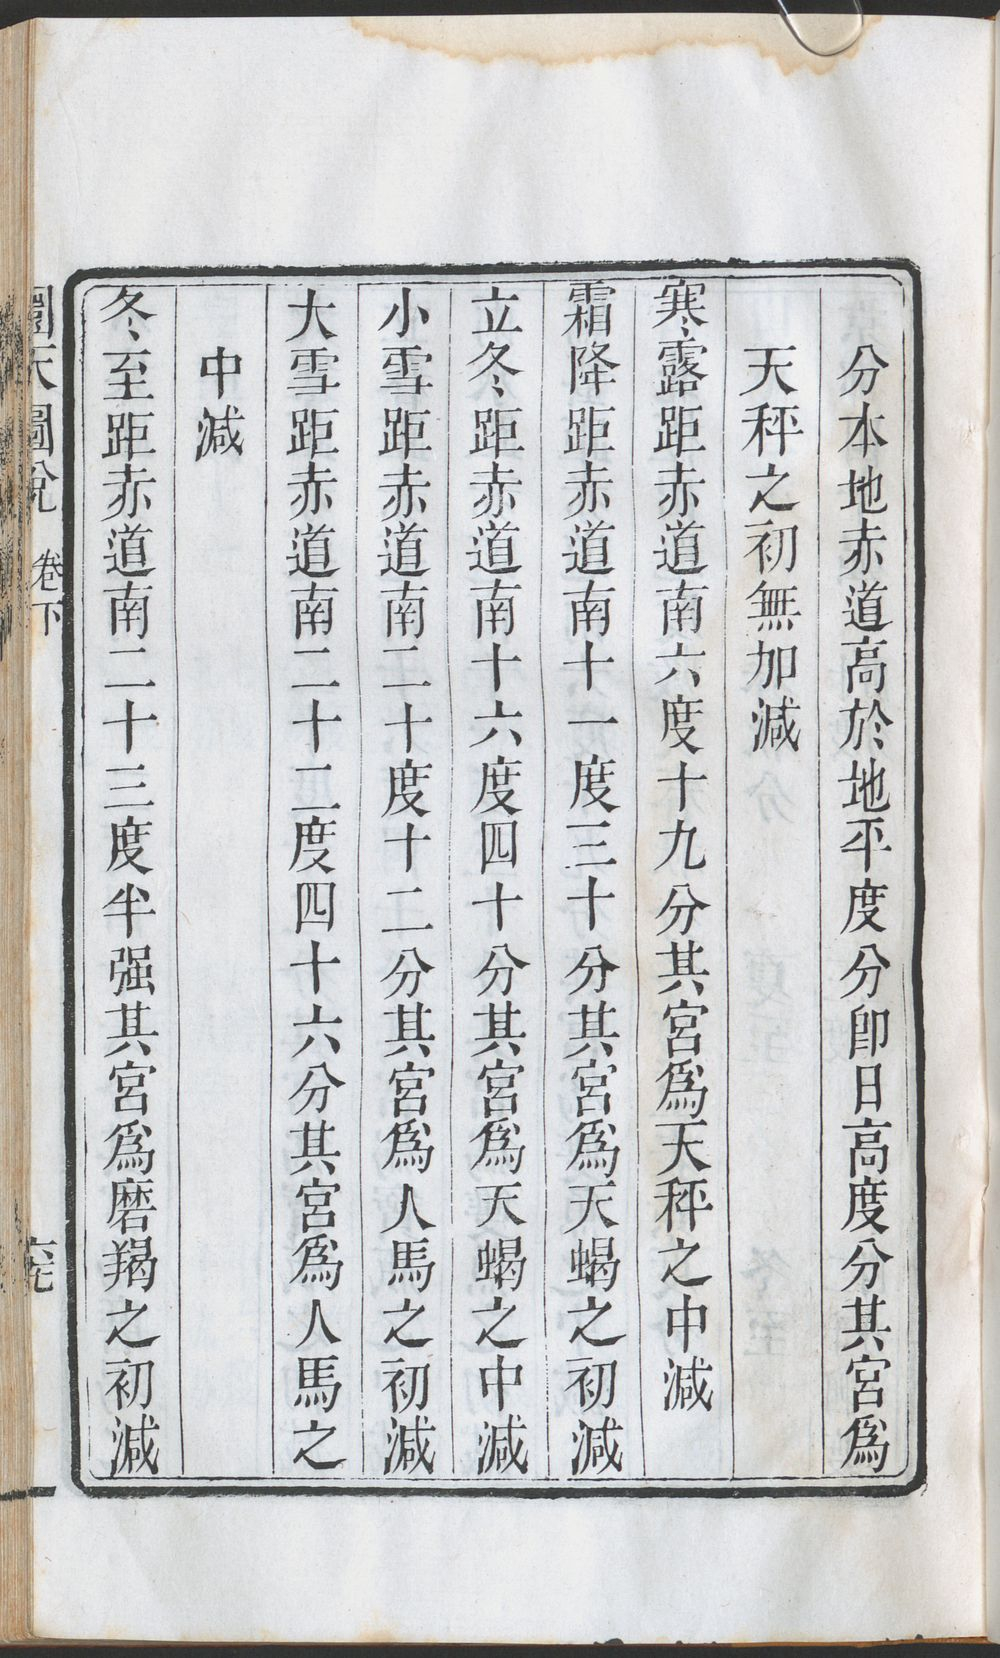 分本地赤道高於地平度分卽日高度分其宮爲
天秤之初無加減
寒露距赤道南六度十九分其宮爲天秤之中減
霜降距赤道南十一度三十分其宮爲天蝎之初減
立冬距赤道南十六度四十分其宮爲天蝎之中減
小雪距赤道南二十度十二分其宮爲人馬之初減
大雪距赤道南二十二度四十六分其宮爲人馬之
中減
冬至距赤道南二十三度半强其宮爲磨羯之初減
圜天圖說 卷下